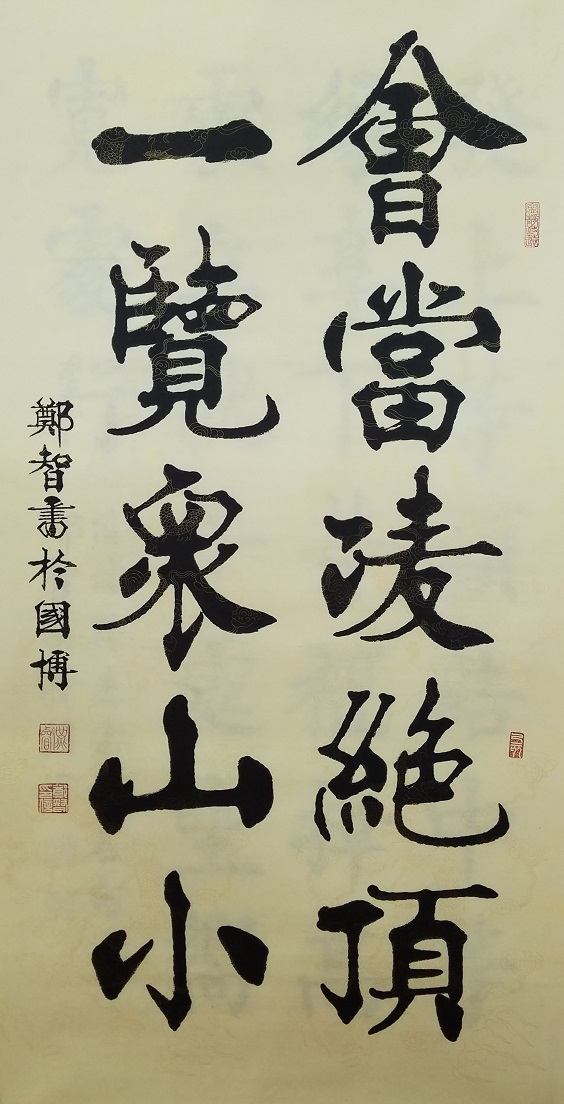 會當凌絕頂
一覽眾山小
鄭智書於國博